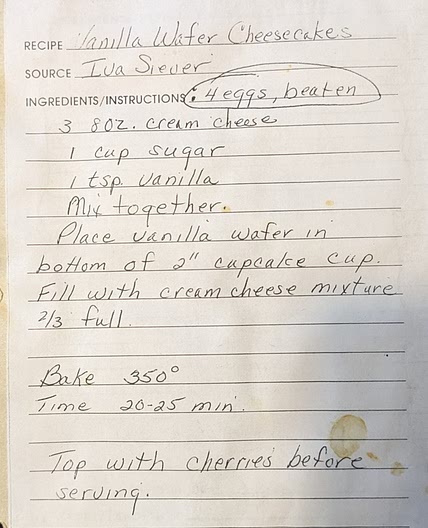 RECIPE Vanilla Wafer Cheesecakes
SOURCE Iva Siever
INGREDIENTS/INSTRUCTIONS: 4 eggs, beaten
3 8oz. cream cheese
1 cup sugar
1 tsp. vanilla
Mix together.
Place vanilla wafer in
bottom of 2" cupcake cup.
Fill with cream cheese mixture
2/3 full.
Bake 350°
Time 20-25 min.
Top with cherries before
serving.